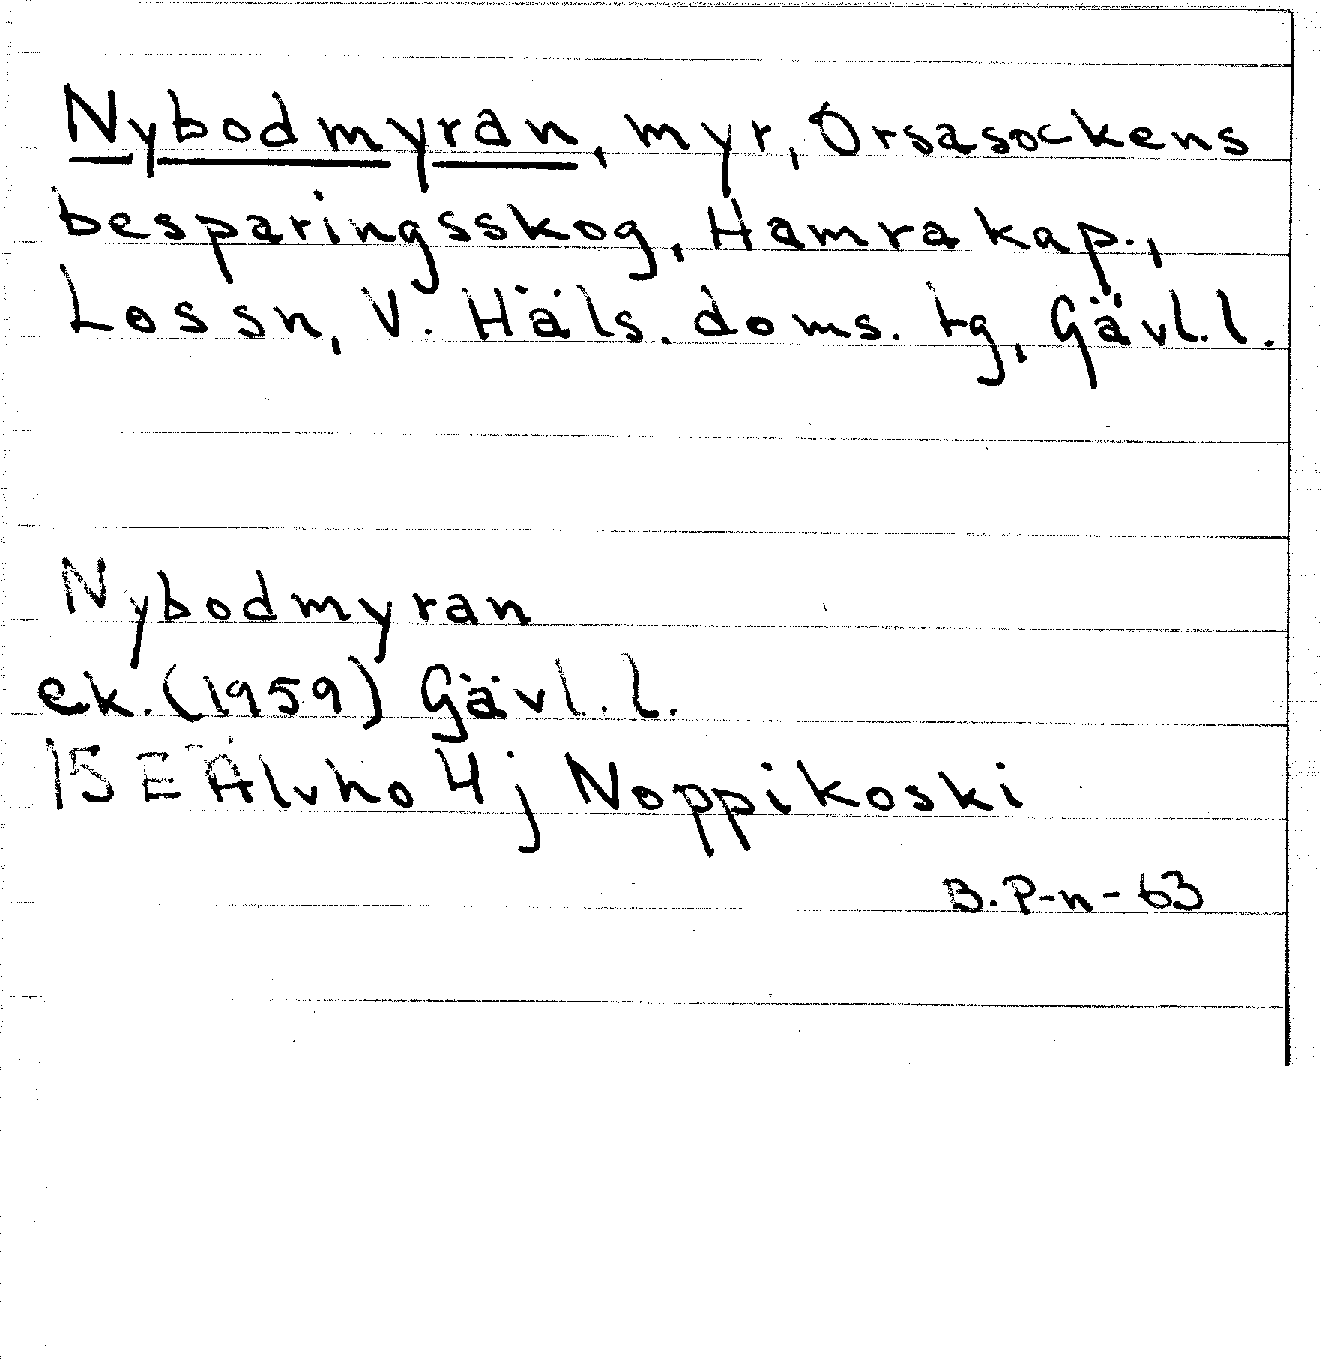 Nybodmyran, myr, Orsasockens
besparingsskog, Hamra kap.,
Lossn, V. Häls. doms. tg, Gävl.l.
Nybodmyran
ek. (1959) Gävl.l.
15 E Älvho 4j Noppikoski
B.P-n-63